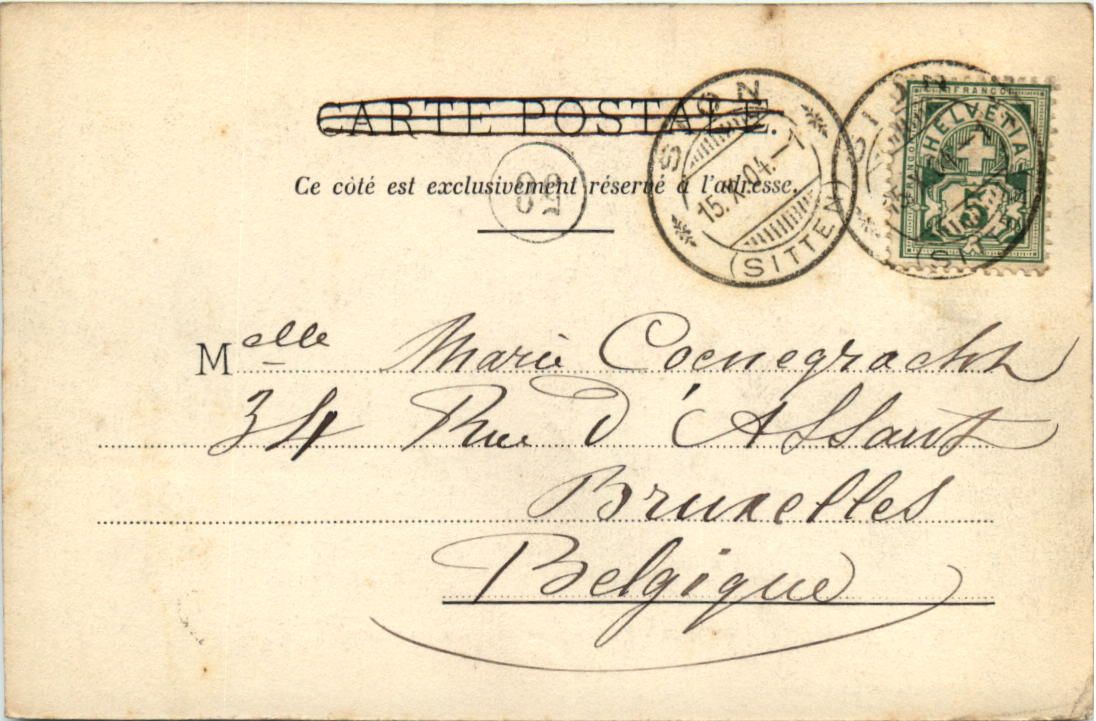 CARTE POSTALE.
Ce côté est exclusivement réservé à l'adresse.
SION
15.X.04.-7
(SITTEN)
SION
(SITTEN)
FRANCO
FRANCO
HELVETIA
5
Melle Marie Coenegracht
34 Rue d'Assaut
Bruxelles
Belgique